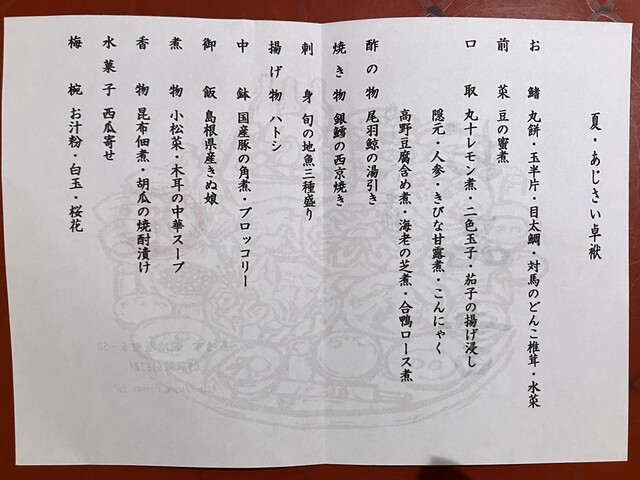 夏・あじさい卓袱
お鰭 丸餅・玉半片・目太鯛・対馬のどんこ椎茸・水菜
前菜 豆の蜜煮
口取 丸十レモン煮・二色玉子・茄子の揚げ浸し
隠元・人参・きびな甘露煮・こんにゃく
高野豆腐含め煮・海老の芝煮・合鴨ロース煮
酢の物 尾羽鯨の湯引き
焼き物 銀鱈の西京焼き
刺身 旬の地魚三種盛り
揚げ物 ハトシ
中鉢 国産豚の角煮・ブロッコリー
御飯 島根県産きぬ娘
煮物 小松菜・木耳の中華スープ
香物 昆布佃煮・胡瓜の焼酎漬け
水菓子 西瓜寄せ
梅椀 お汁粉・白玉・桜花